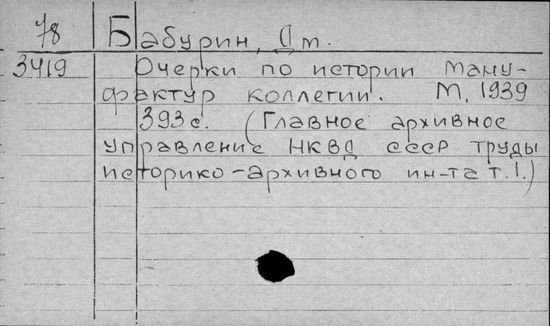 78 Бабурин, Дm.
3419 Очерки по истории Ману-
фактур коллегии. М, 1939
393 с. (Главное архивное
управление НКВД СССР труды
историко-архивного ин-та т. I.)